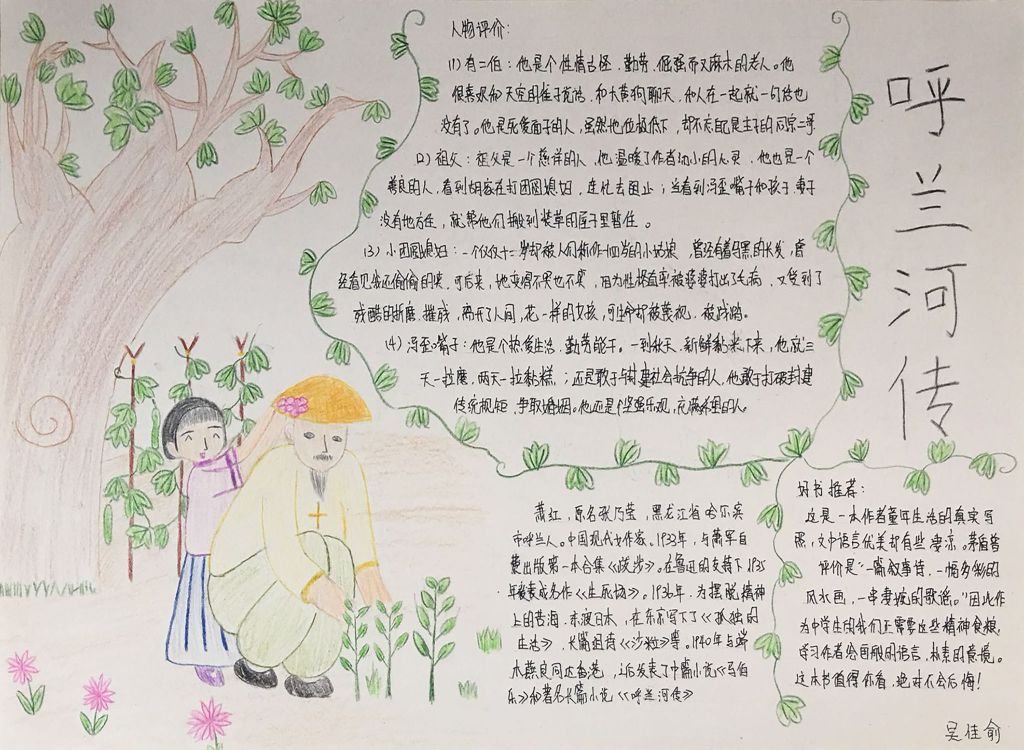 呼兰河传
人物评价：
(1) 有二伯：他是个性情古怪、勤劳、倔强而又麻木的老人。他
很喜欢和天空的雀子说话，和大黄狗聊天，和人在一起就一句话也
没有了。他是死爱面子的人，虽然地位极低下，却不忘自己是主子的同宗二哥
(2) 祖父：祖父是一个慈祥的人，他温暖了作者幼小的心灵，他也是一个
善良的人，看到胡家在打团圆媳妇，连忙去阻止；当看到冯歪嘴子和孩子、妻子
没有地方住，就帮他们搬到装草的屋子里暂住。
(3) 小团圆媳妇：一个仅仅十二岁却被人们称作十四岁的小姑娘，曾经有着乌黑的长发，曾
经看见我还偷偷的笑，可后来，她变得不哭也不笑，因为性格直率被婆婆打出了毛病，又受到了
残酷的折磨、摧残，离开了人间，花一样的女孩，可生命却被蔑视，被践踏。
(4) 冯歪嘴子：他是个热爱生活、勤劳能干。一到秋天，新鲜黏米下来，他就三
天一拉磨，两天一拉黏糕，；还是敢于与封建社会抗争的人，他敢于打破封建
传统规矩，争取婚姻。他还是个坚强乐观，充满希望的人。
萧红，原名张乃莹，黑龙江省哈尔滨
市呼兰人。中国现代女作家、1933年，与萧军自
费出版第一本合集《跋涉》。在鲁迅的支持下1935
年发表成名作《生死场》。1936年，为摆脱精神
上的苦海，东渡日本，在东京写下了《孤独的
生活》、长篇组诗《沙粒》等。1940年与端
木蕻良同达香港，之后发表了中篇小说《马伯
乐》和著名长篇小说《呼兰河传》
好书推荐：
这是一本作者童年生活的真实写
照，文中语言优美却有些凄凉。茅盾曾
评价是“一篇叙事诗，一幅多彩的
风水画，一串凄婉的歌谣。”因此作
为中学生的我们正需要这些精神食粮，
学习作者绘画般的语言，朴素的意境。
这本书值得你看，绝对不会后悔！
吴佳俞